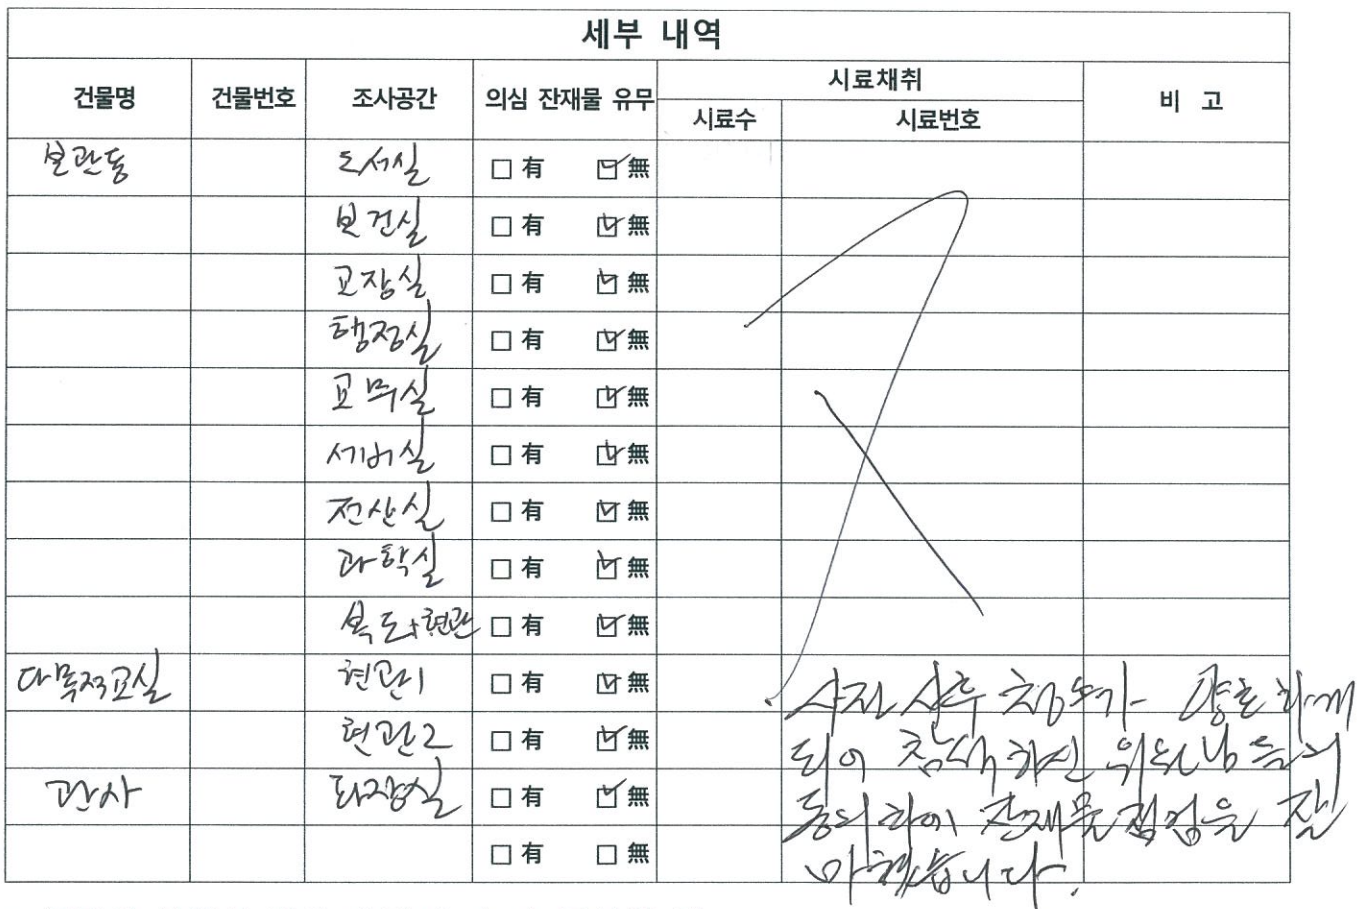 세부 내역
건물명 건물번호 조사공간 의심 잔재물 유무 시료채취 비 고
시료수 시료번호
본관동 도서실 □ 有 ☑ 無
보건실 □ 有 ☑ 無
교장실 □ 有 ☑ 無
행정실 □ 有 ☑ 無
교무실 □ 有 ☑ 無
서버실 □ 有 ☑ 無
전산실 □ 有 ☑ 無
과학실 □ 有 ☑ 無
복도+현관 □ 有 ☑ 無
다목적교실 현관1 □ 有 ☑ 無
현관2 □ 有 ☑ 無
관사 화장실 □ 有 ☑ 無
□ 有 □ 無
사전 사후 청소가 양호하게
되어 참석하신 위원님들의
동의하에 잔재물점검을 잘
마쳤습니다.